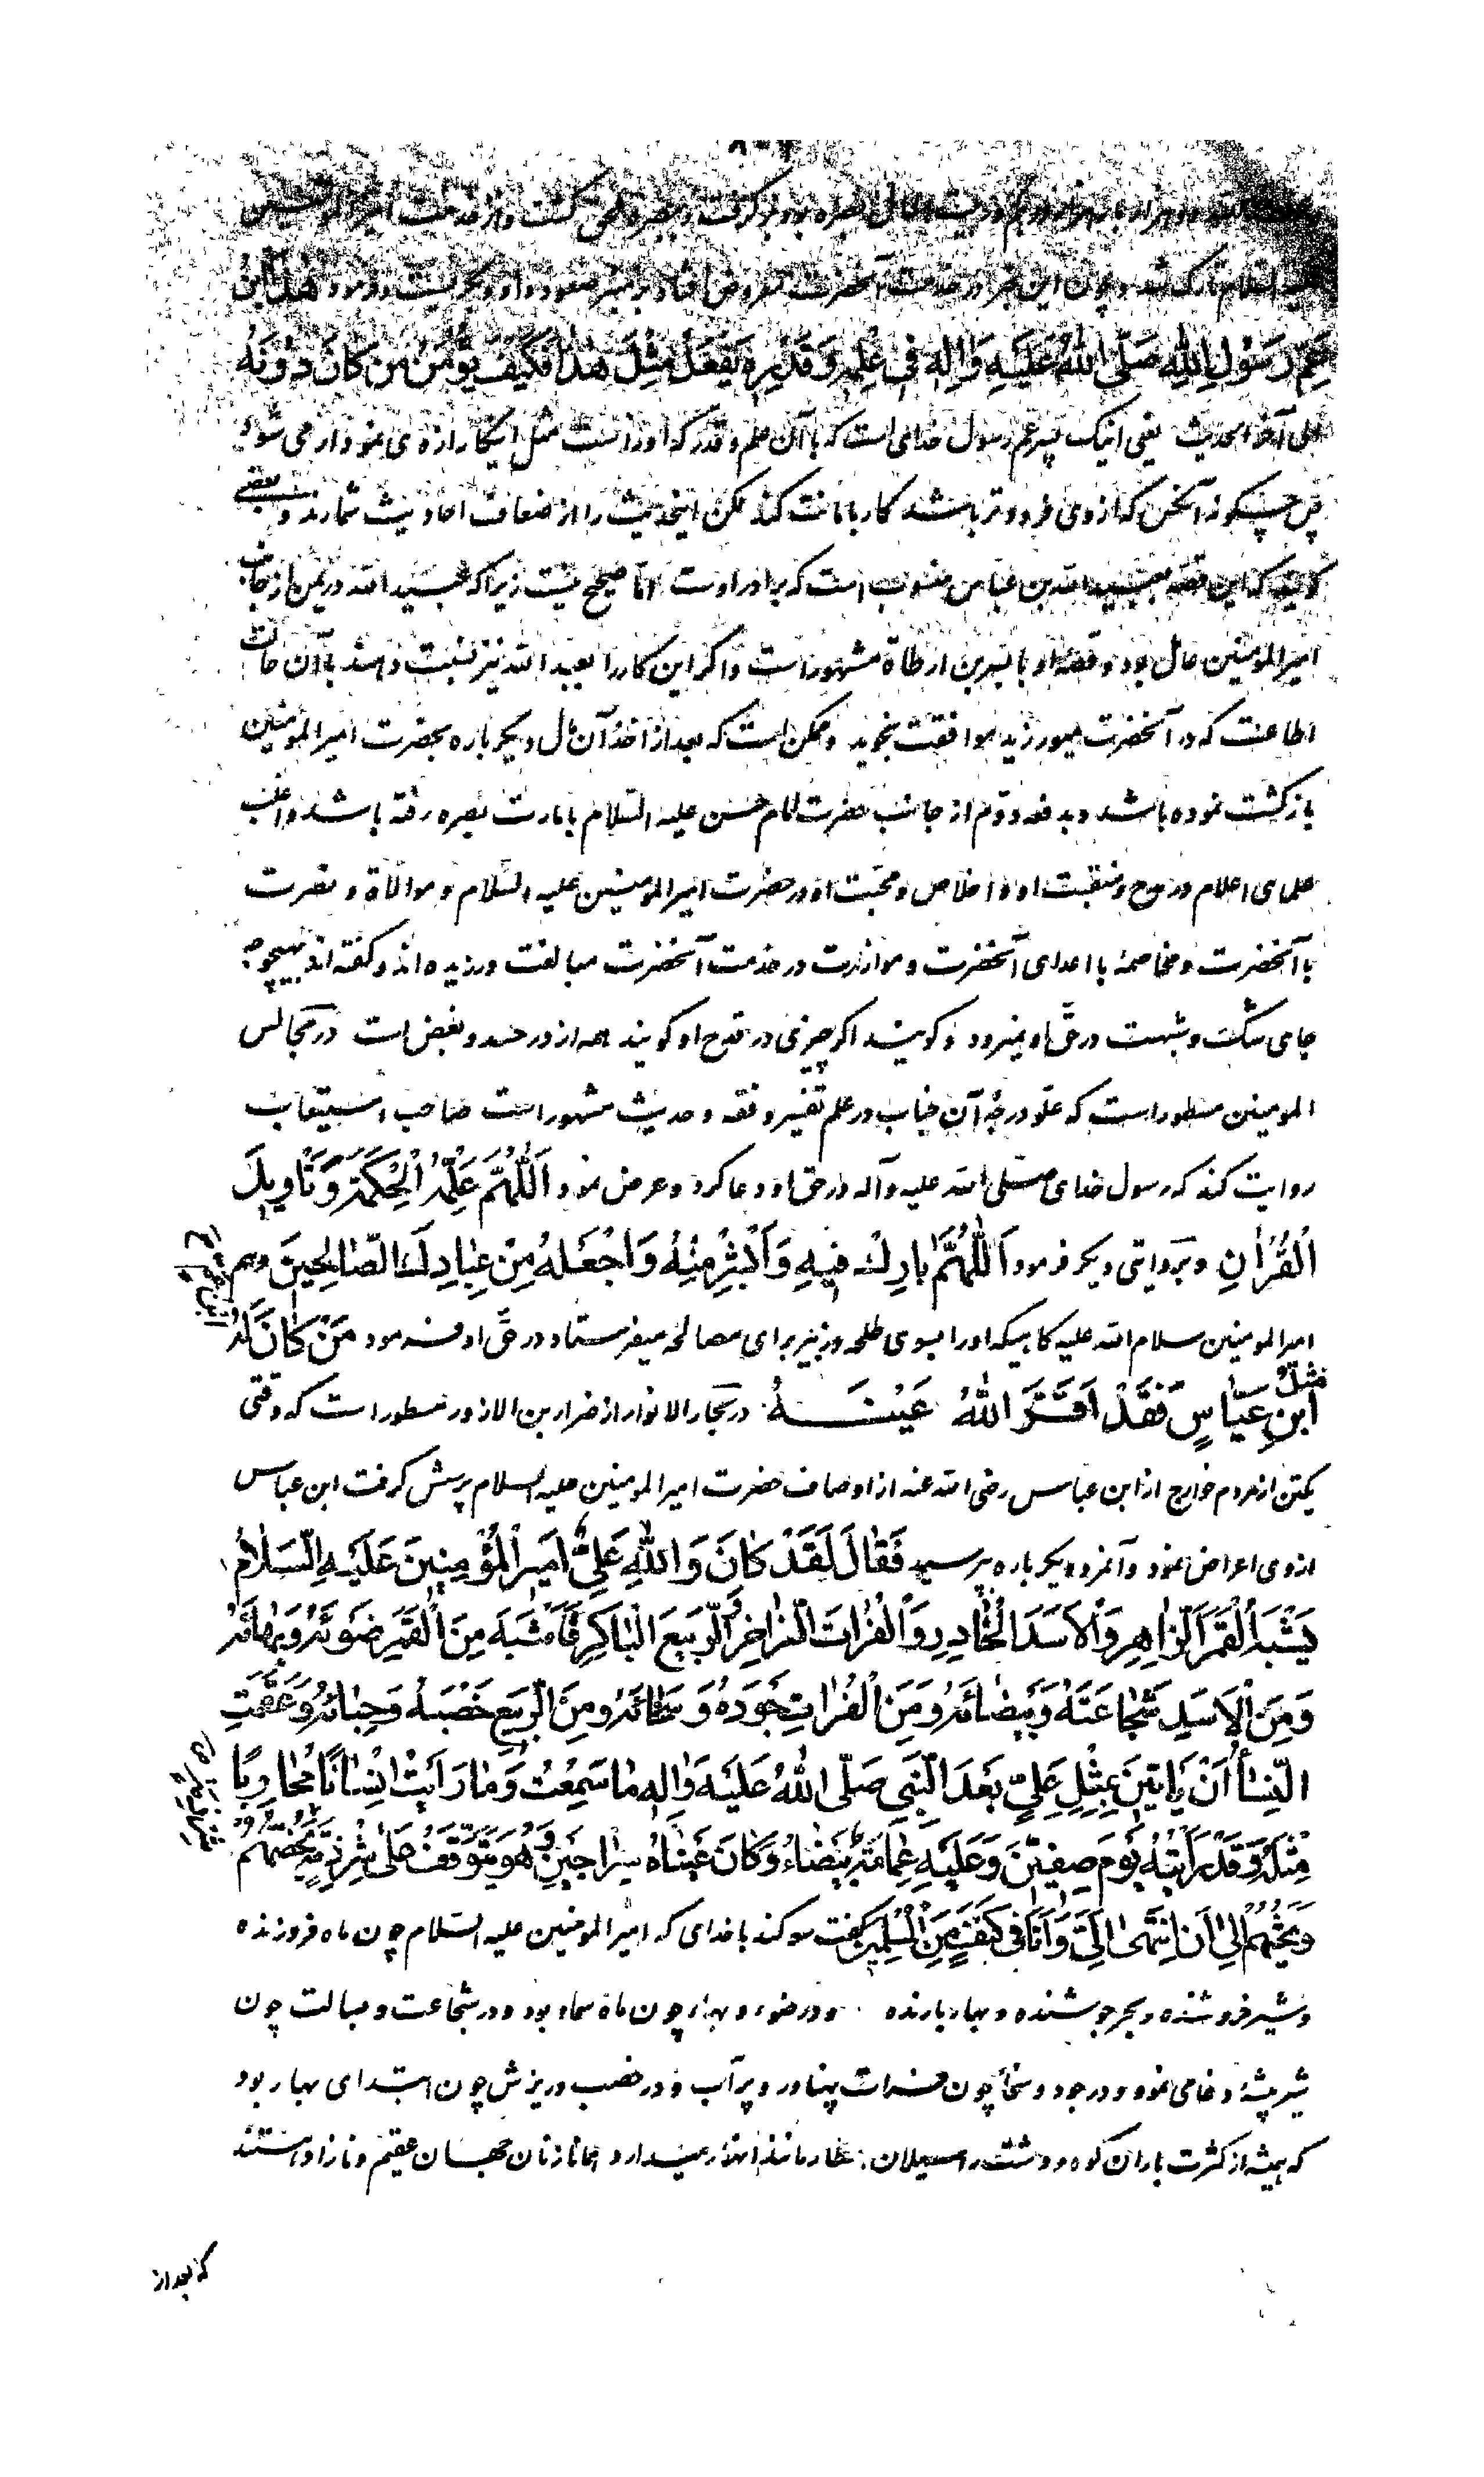 دو هزار بار هزار درهم در بیت المال بصره بود برگرفت و بمکه گشت و از خدمت امیر المؤمنین
السلام تارک شد و چون این خبر در خدمت آنحضرت معروض افتاد بر منبر صعود داد و بگریست و فرمود هذا ابن
عم رسول الله صلی الله علیه واله فی علمه وقدره یفعل مثل هذا فکیف یؤمن من کان دونه
الی آخر الحدیث یعنی اینک پسر عم رسول خدای است که با آن علم و قدر که او راست مثل اینکار از وی نمودار می شود
پس چگونه آنکس که از وی فرودتر باشد کار بامانت کند لکن اینحدیث را از ضعاف احادیث شمارند و بعضی
گویند که این قصه بعبید الله بن عباس منسوب است که برادر اوست اما صحیح نیست زیرا که عبید الله در یمن از جانب
امیر المومنین عامل بود و قصه او با بسر بن ارطاة مشهور است و اگر این کار را بعبید الله نیز نسبت دهند با آن حالت
اطاعت که در آنحضرت میورزید موافقت نجوید و ممکن است که بعد از اخذ آن مال دیگر باره بحضرت امیر المؤمنین
بازگشت نموده باشد و بدفعه دوم از جانب حضرت امام حسن علیه السلام بامارت بصره رفته باشد و اغلب
علمای اعلام در مدح و منقبت او و اخلاص و محبت او در حضرت امیر المومنین علیه السلام و موالاة و نصرت
با آنحضرت و مخاصمه با اعدای آنحضرت و موازرت در خدمت آنحضرت مبالغت ورزیده اند و گفته اند بهیچوجه
جای شک و شبهت در حق او نمیرود و گویند اگر چیزی در قدح او گویند همه از در حسد و بغض است در مجالس
المومنین مسطور است که علو درجه آن جناب در علم تفسیر و فقه و حدیث مشهور است صاحب استیعاب
روایت کند که رسول خدای صلی الله علیه و آله در حق او دعا کرد و عرض نمود اللهم علمه الحکمة وتاویل
القرآن و بروایتی دیگر فرمود اللهم بارک فیه وانشر منه واجعله من عبادک الصالحین وهم
امیر المومنین سلام الله علیه گاهیکه او را بسوی طلحه و زبیر برای مصالحه میفرستاد در حق او فرمود من کان له
مثل ابن عباس فقد اقر الله عینه در بحار الانوار از ضرار بن الازور مسطور است که وقتی
یکتن از مردم خوارج از ابن عباس رضی الله عنه از اوصاف حضرت امیر المومنین علیه السلام پرسش گرفت ابن عباس
از وی اعراض نمود و آنمرد دیگر باره بپرسید فقال لقد کان والله علی امیر المؤمنین علیه السلام
یشبه القمر الزاهر والاسد الخادر والفرات الزاخر والربیع الباکر فاشبه من القمر ضوئه وبهائه
ومن الاسد شجاعته ومضائه ومن الفرات جوده وسخائه ومن الربیع خصبه وحبائه وعقمت
النساء ان یاتین بمثل علی بعد النبی صلی الله علیه واله ما سمعت وما رایت انسانا محاربا
مثله وقد رایته یوم صفین وعلیه عمامة بیضاء وکان عیناه سراجین وهو یتوقف علی شرذمة یحضهم
ویحثهم الی ان انتهی الی وانا فی کنف من المسلمین گفت سوگند باخدای که امیر المومنین علیه السلام چون ماه فروزنده
و شیر خروشنده و بحر جوشنده و بهار بارنده و در ضوء و بهاء چون ماه سماء بود و در شجاعت و بسالت چون
شیر بیشه دغامی نمود و در جود و سخا چون فرات پهناور و پر آب و در خصب و ریزش چون ابتدای بهار بود
که همیشه از کثرت باران کوه و دشت را سیلان همانا زنان جهان عقیم و نازا هستند
که بعد از